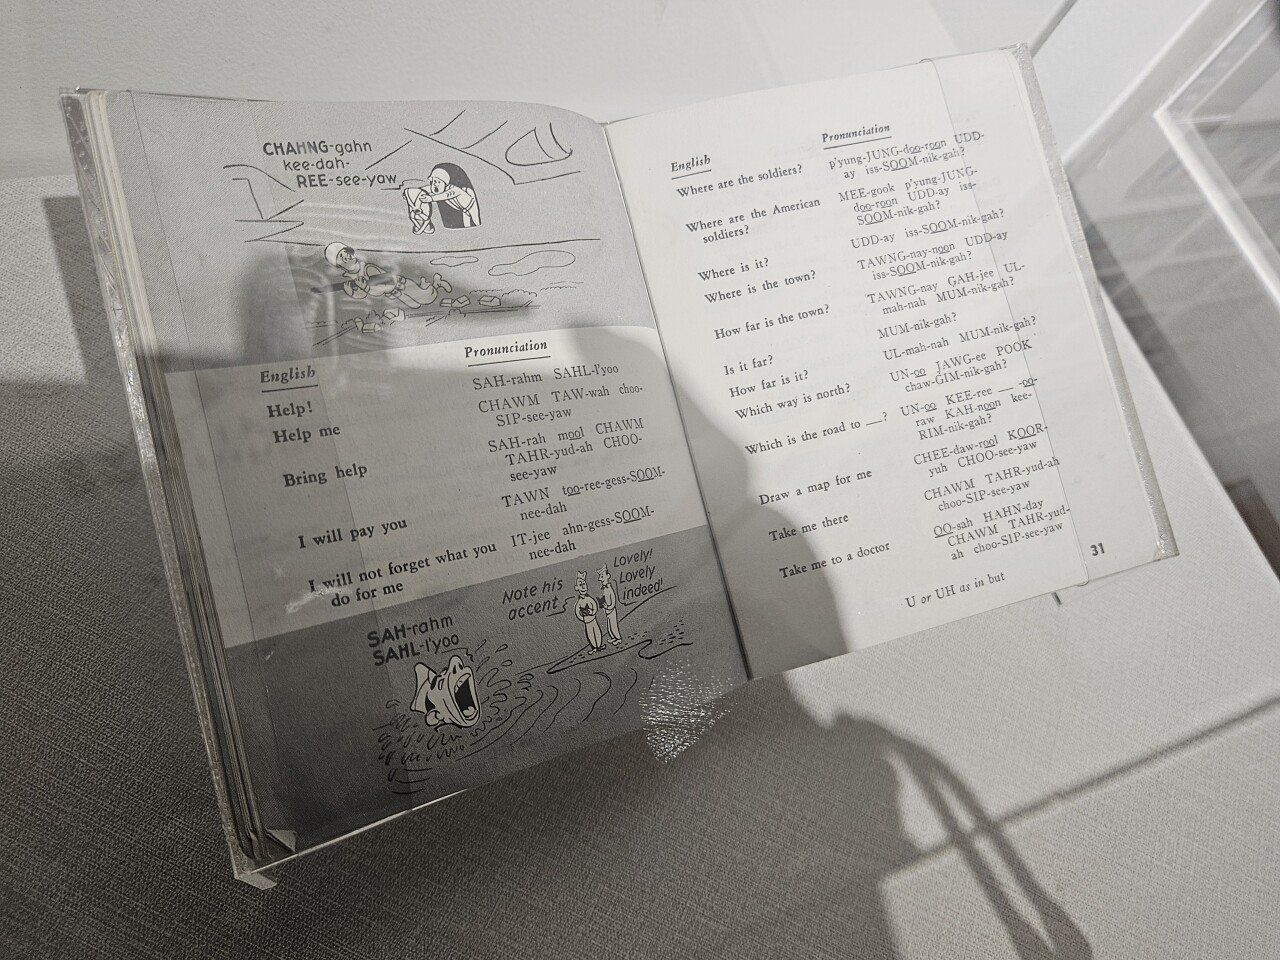 CHAHNG-gahn
kee-dah-
REE-see-yaw
English
Pronunciation
Help!
SAH-rahm SAHL-l'yoo
Help me
CHAWM TAW-wah choo-
SIP-see-yaw
Bring help
SAH-rah mool CHAWM
TAHR-yud-ah CHOO-
see-yaw
I will pay you
TAWN too-ree-gess-SOOM-
nee-dah
I will not forget what you
do for me
IT-jee ahn-gess-SOOM-
nee-dah
SAH-rahm
SAHL-l'yoo
Note his
accent
Lovely!
Lovely
indeed!
English
Pronunciation
Where are the soldiers?
p'yung-JUNG-doo-roon UDD-
ay iss-SOOM-nik-gah?
Where are the American
soldiers?
MEE-gook p'yung-JUNG-
doo-roon UDD-ay iss-
SOOM-nik-gah?
Where is it?
UDD-ay iss-SOOM-nik-gah?
Where is the town?
TAWNG-nay-noon UDD-ay
iss-SOOM-nik-gah?
How far is the town?
TAWNG-nay GAH-jee UL-
mah-nah MUM-nik-gah?
Is it far?
MUM-nik-gah?
How far is it?
UL-mah-nah MUM-nik-gah?
Which way is north?
UN-oo JAWG-ee POOK
chaw-GIM-nik-gah?
Which is the road to ___?
UN-oo KEE-ree ___ -oo-
raw KAH-noon kee-
RIM-nik-gah?
Draw a map for me
CHEE-daw-rool KOOR-
yuh CHOO-see-yaw
Take me there
CHAWM TAHR-yud-ah
choo-SIP-see-yaw
Take me to a doctor
OO-sah HAHN-day
CHAWM TAHR-yud-
ah choo-SIP-see-yaw
31
U or UH as in but